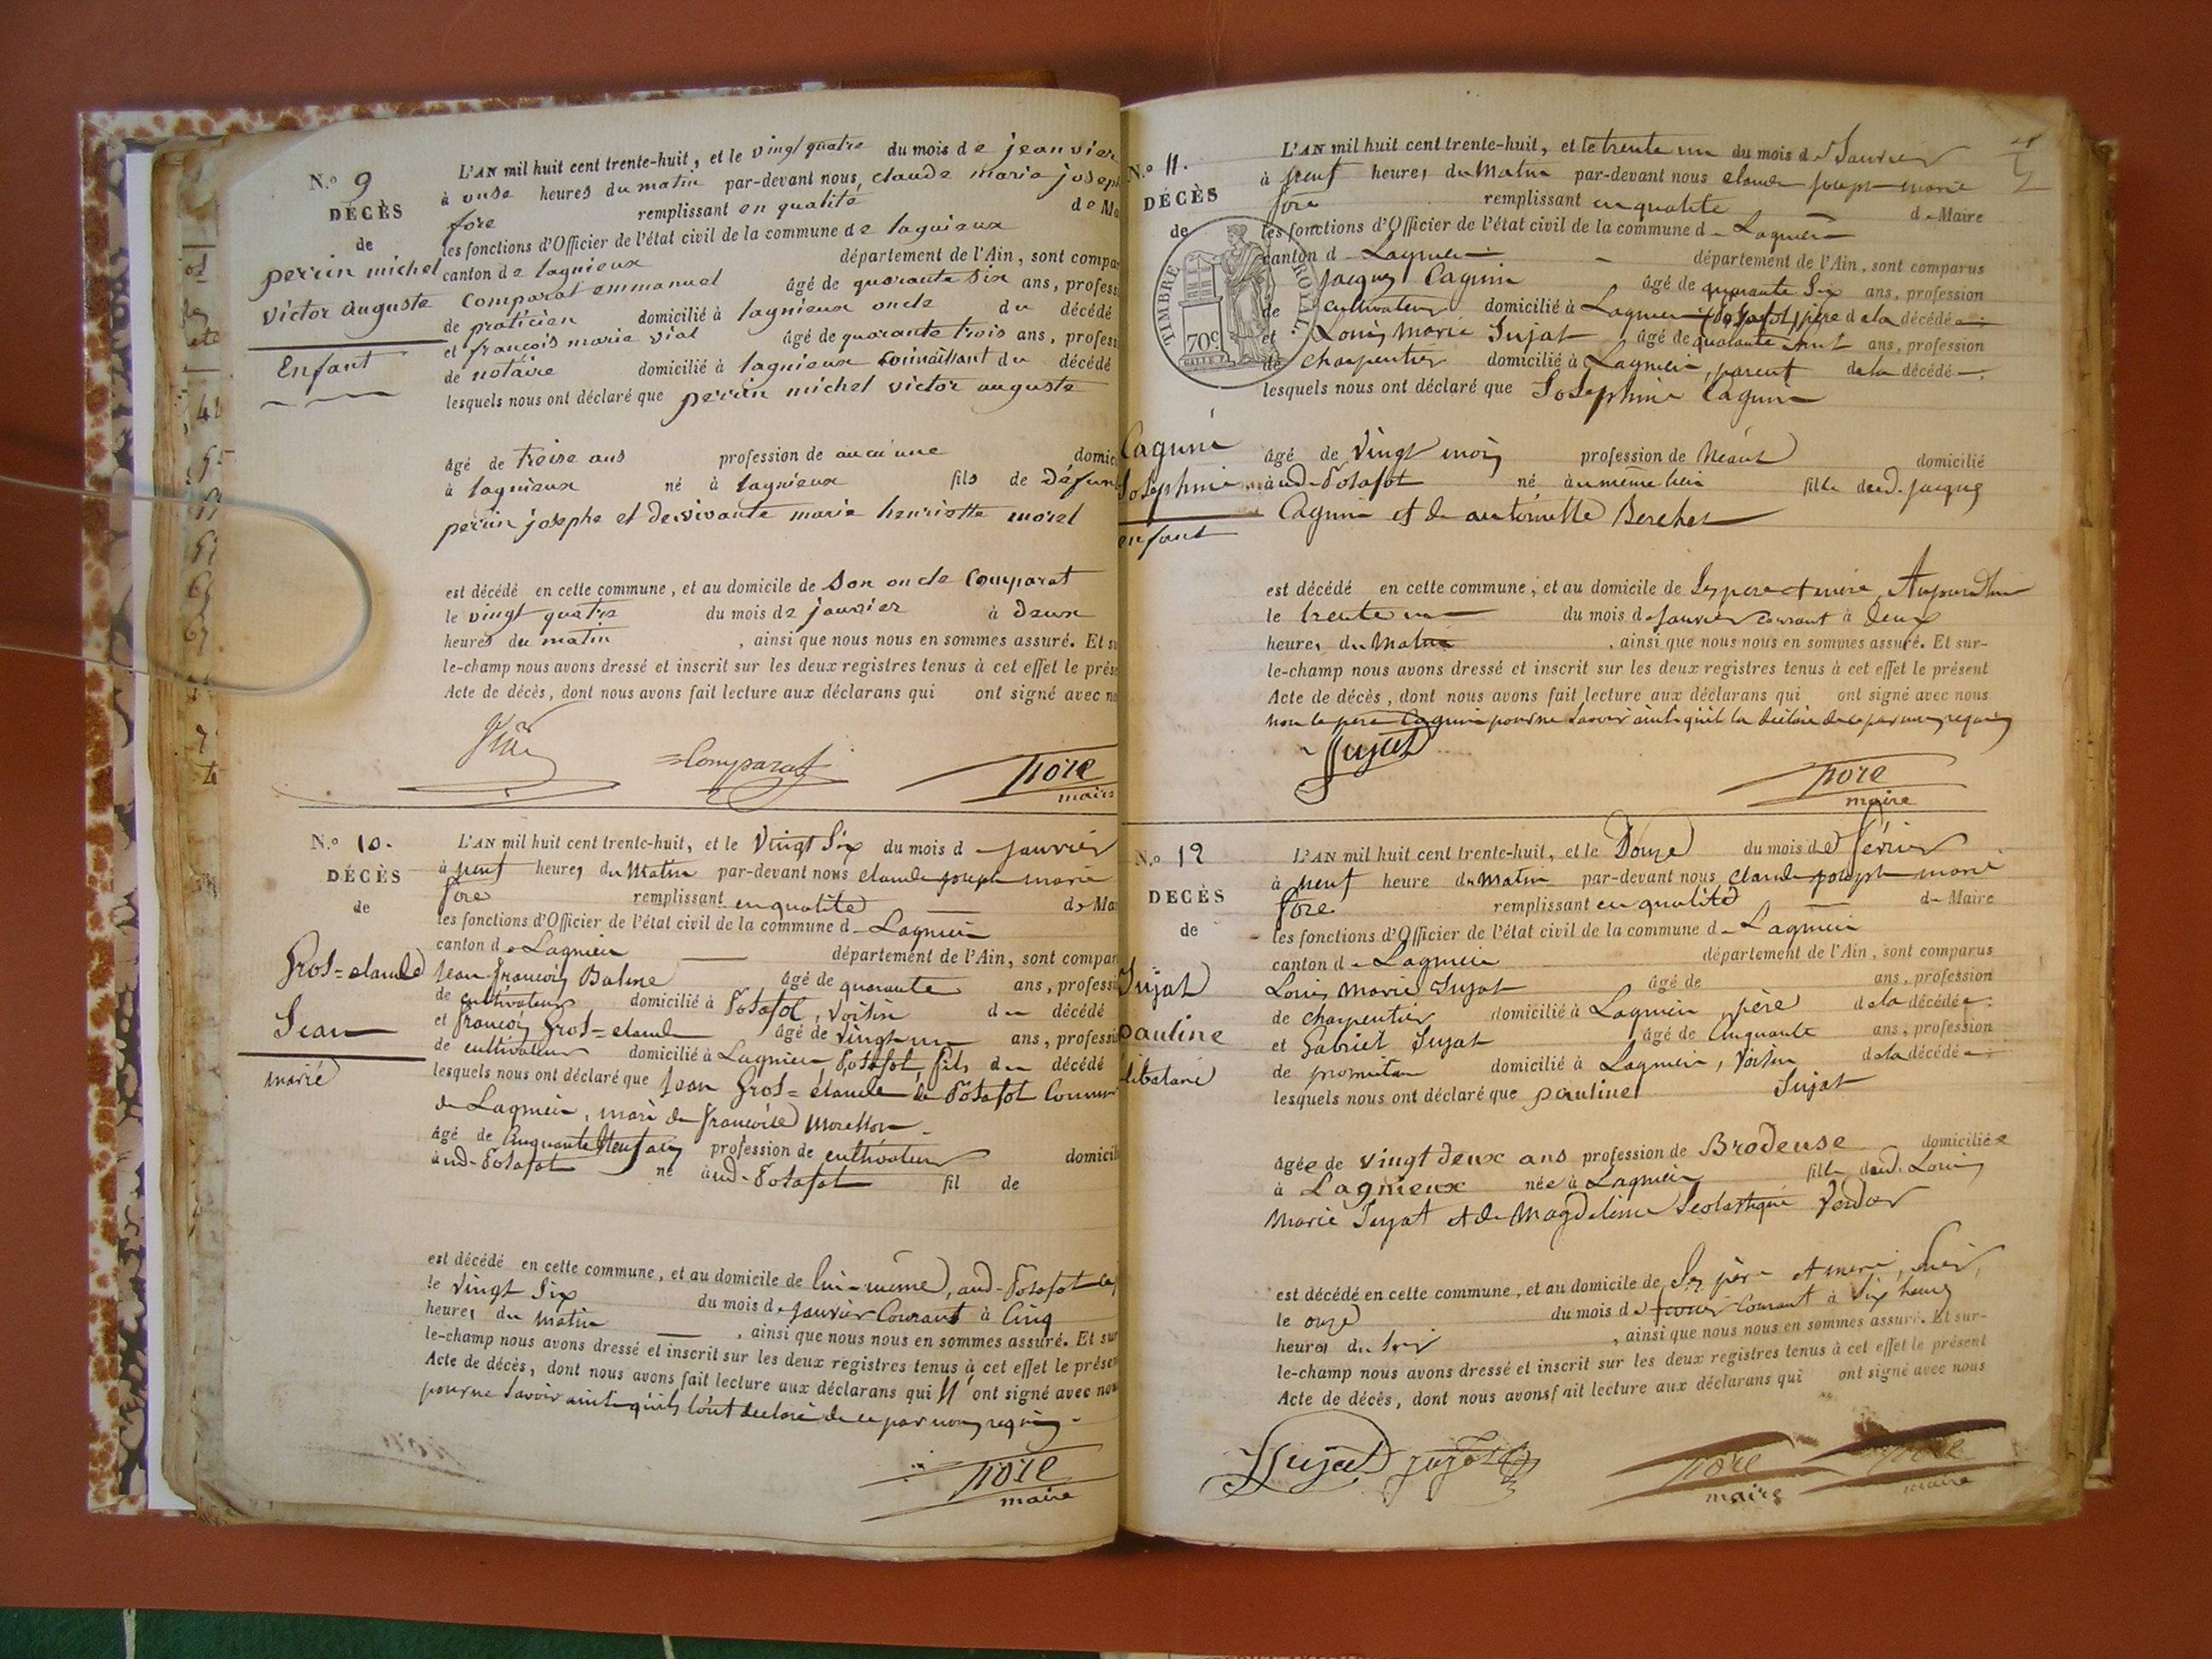 N.o 9
DÉCÈS
de
perrin michel
victor auguste
Enfant
L'AN mil huit cent trente-huit, et le vingt quatre du mois de jeanvier
à onse heures du matin par-devant nous, claude marie joseph
fore remplissant en qualité de Ma
les fonctions d'Officier de l'état civil de la commune de lagnieux
canton de lagnieux département de l'Ain, sont compa
Comparat emmanuel âgé de quarante six ans, profess
de praticien domicilié à lagnieux oncle du décédé
et françois marie vial âgé de quarante trois ans, profess
de notaire domicilié à lagnieux connaissant du décédé
lesquels nous ont déclaré que perrin michel victor auguste
âgé de treise ans profession de aucune domic
à lagnieux né à lagnieux fils de défun
perrin josephe et de vivante marie henriette morel
est décédé en cette commune, et au domicile de son oncle Comparat
le vingt quatre du mois de janvier à deux
heures du matin , ainsi que nous nous en sommes assuré. Et su
le-champ nous avons dressé et inscrit sur les deux registres tenus à cet effet le prése
Acte de décès, dont nous avons fait lecture aux déclarans qui ont signé avec no
Comparat fore
maire
N.o 10.
DÉCÈS
de
Gros=claude
Jean
marié
L'AN mil huit cent trente-huit, et le Vingt Six du mois d janvier
à neuf heures du Matin par-devant nous claude joseph marie
fore remplissant en qualité de Mai
les fonctions d'Officier de l'état civil de la commune d Lagnieu
canton de Lagnieu département de l'Ain, sont compar
Jean françois Balme âgé de quarante ans, professi
de cultivateur domicilié à Posafol, voisin du décédé
et françois Gros=claude âgé de vingt un ans, professi
de cultivateur domicilié à Lagnieu Posafol, fils du décédé
lesquels nous ont déclaré que Jean Gros=claude de Posafol Commun
de Lagnieu, mari de françoise
âgé de Cinquante Neuf ans profession de cultivateur domicili
aud. Posafol né aud. Posafol fil de
est décédé en cette commune, et au domicile de lui-même, aud. Posafol
le vingt Six du mois de janvier Courant à Cinq
heures du matin , ainsi que nous nous en sommes assuré. Et sur
le-champ nous avons dressé et inscrit sur les deux registres tenus à cet effet le présen
Acte de décès, dont nous avons fait lecture aux déclarans qui n'ont signé avec nous
pour ne savoir ainsi qu'ils l'ont déclaré de ce par nous requis
fore
maire
N.o 11.
DÉCÈS
de
TIMBRE ROYAL
70c
Caguin
Josephine
enfant
L'AN mil huit cent trente-huit, et le trente un du mois de Janvier
à neuf heures du Matin par-devant nous claude joseph marie
fore remplissant en qualité de Maire
les fonctions d'Officier de l'état civil de la commune d Lagnieu
canton d Lagnieu département de l'Ain, sont comparus
Jacques Caguin âgé de quarante Six ans, profession
de cultivateur domicilié à Lagnieu (Posafol) père de la décédée
et Louis Marie Sujat âgé de quarante huit ans, profession
de charpentier domicilié à Lagnieu, parent de la décédée
lesquels nous ont déclaré que Josephine Caguin
âgé de Vingt mois profession de Néant domicilié
aud. Posafol né au même lieu fille dud. Jacques
Caguin et de antoinette Berchet
est décédé en cette commune, et au domicile de Ses père et mère, Aujourd'hui
le trente un du mois de janvier courant à Deux
heures du Matin , ainsi que nous nous en sommes assuré. Et sur-
le-champ nous avons dressé et inscrit sur les deux registres tenus à cet effet le présent
Acte de décès, dont nous avons fait lecture aux déclarans qui ont signé avec nous
non le père Caguin pour ne savoir ainsi qu'il l'a déclaré de ce par nous requis
Sujat fore
maire
N.o 12
DÉCÈS
de
Sujat
pauline
L'AN mil huit cent trente-huit, et le Douze du mois de février
à neuf heure du Matin par-devant nous claude joseph marie
fore remplissant en qualité de Maire
les fonctions d'Officier de l'état civil de la commune d Lagnieu
canton de Lagnieu département de l'Ain, sont comparus
Louis Marie Sujat âgé de ans, profession
de charpentier domicilié à Lagnieu, père de la décédée
et Gabriel Sujat âgé de Cinquante ans, profession
de propriétaire domicilié à Lagnieu, Voisin de la décédée
lesquels nous ont déclaré que pauline Sujat
âgée de vingt deux ans profession de Brodeuse domiciliée
à Lagnieux née à Lagnieu fille dud. Louis
Marie Sujat et de Magdeleine Scolastique Verdor
est décédé en cette commune, et au domicile de Ses père et mère, hier
le onze du mois de février Courant à Six heures
heures du Soir , ainsi que nous nous en sommes assuré. Et sur-
le-champ nous avons dressé et inscrit sur les deux registres tenus à cet effet le présent
Acte de décès, dont nous avons fait lecture aux déclarans qui ont signé avec nous
Sujat Sujat fore fore
maire maire